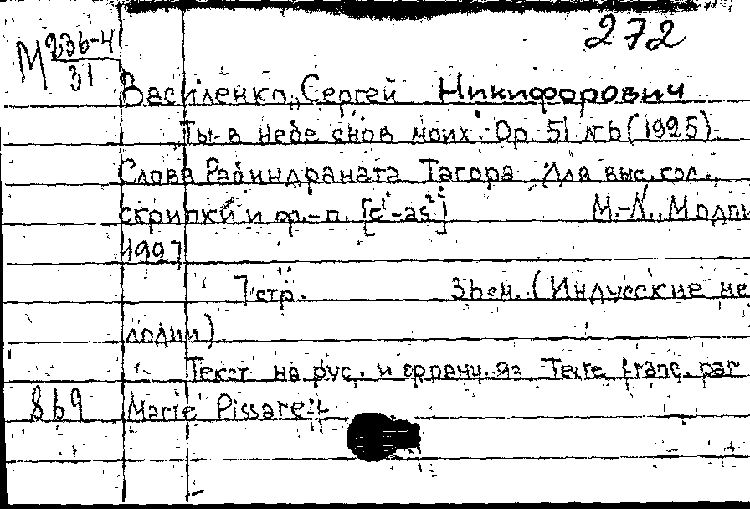 272
М 236-4
31
Василенко, Сергей Никифорович
Ты в небе снов моих. Op. 51 №6 (1925).
Слова Рабиндраната Тагора. Для выс. гол.,
скрипки и ф.-п. [c¹-as²] М.-Л., Модпи
1927
7 стр. 36 см. (Индусские ме
лодии)
Текст на рус. и франц. яз. Texte franç. par
869 Marie Pissareff